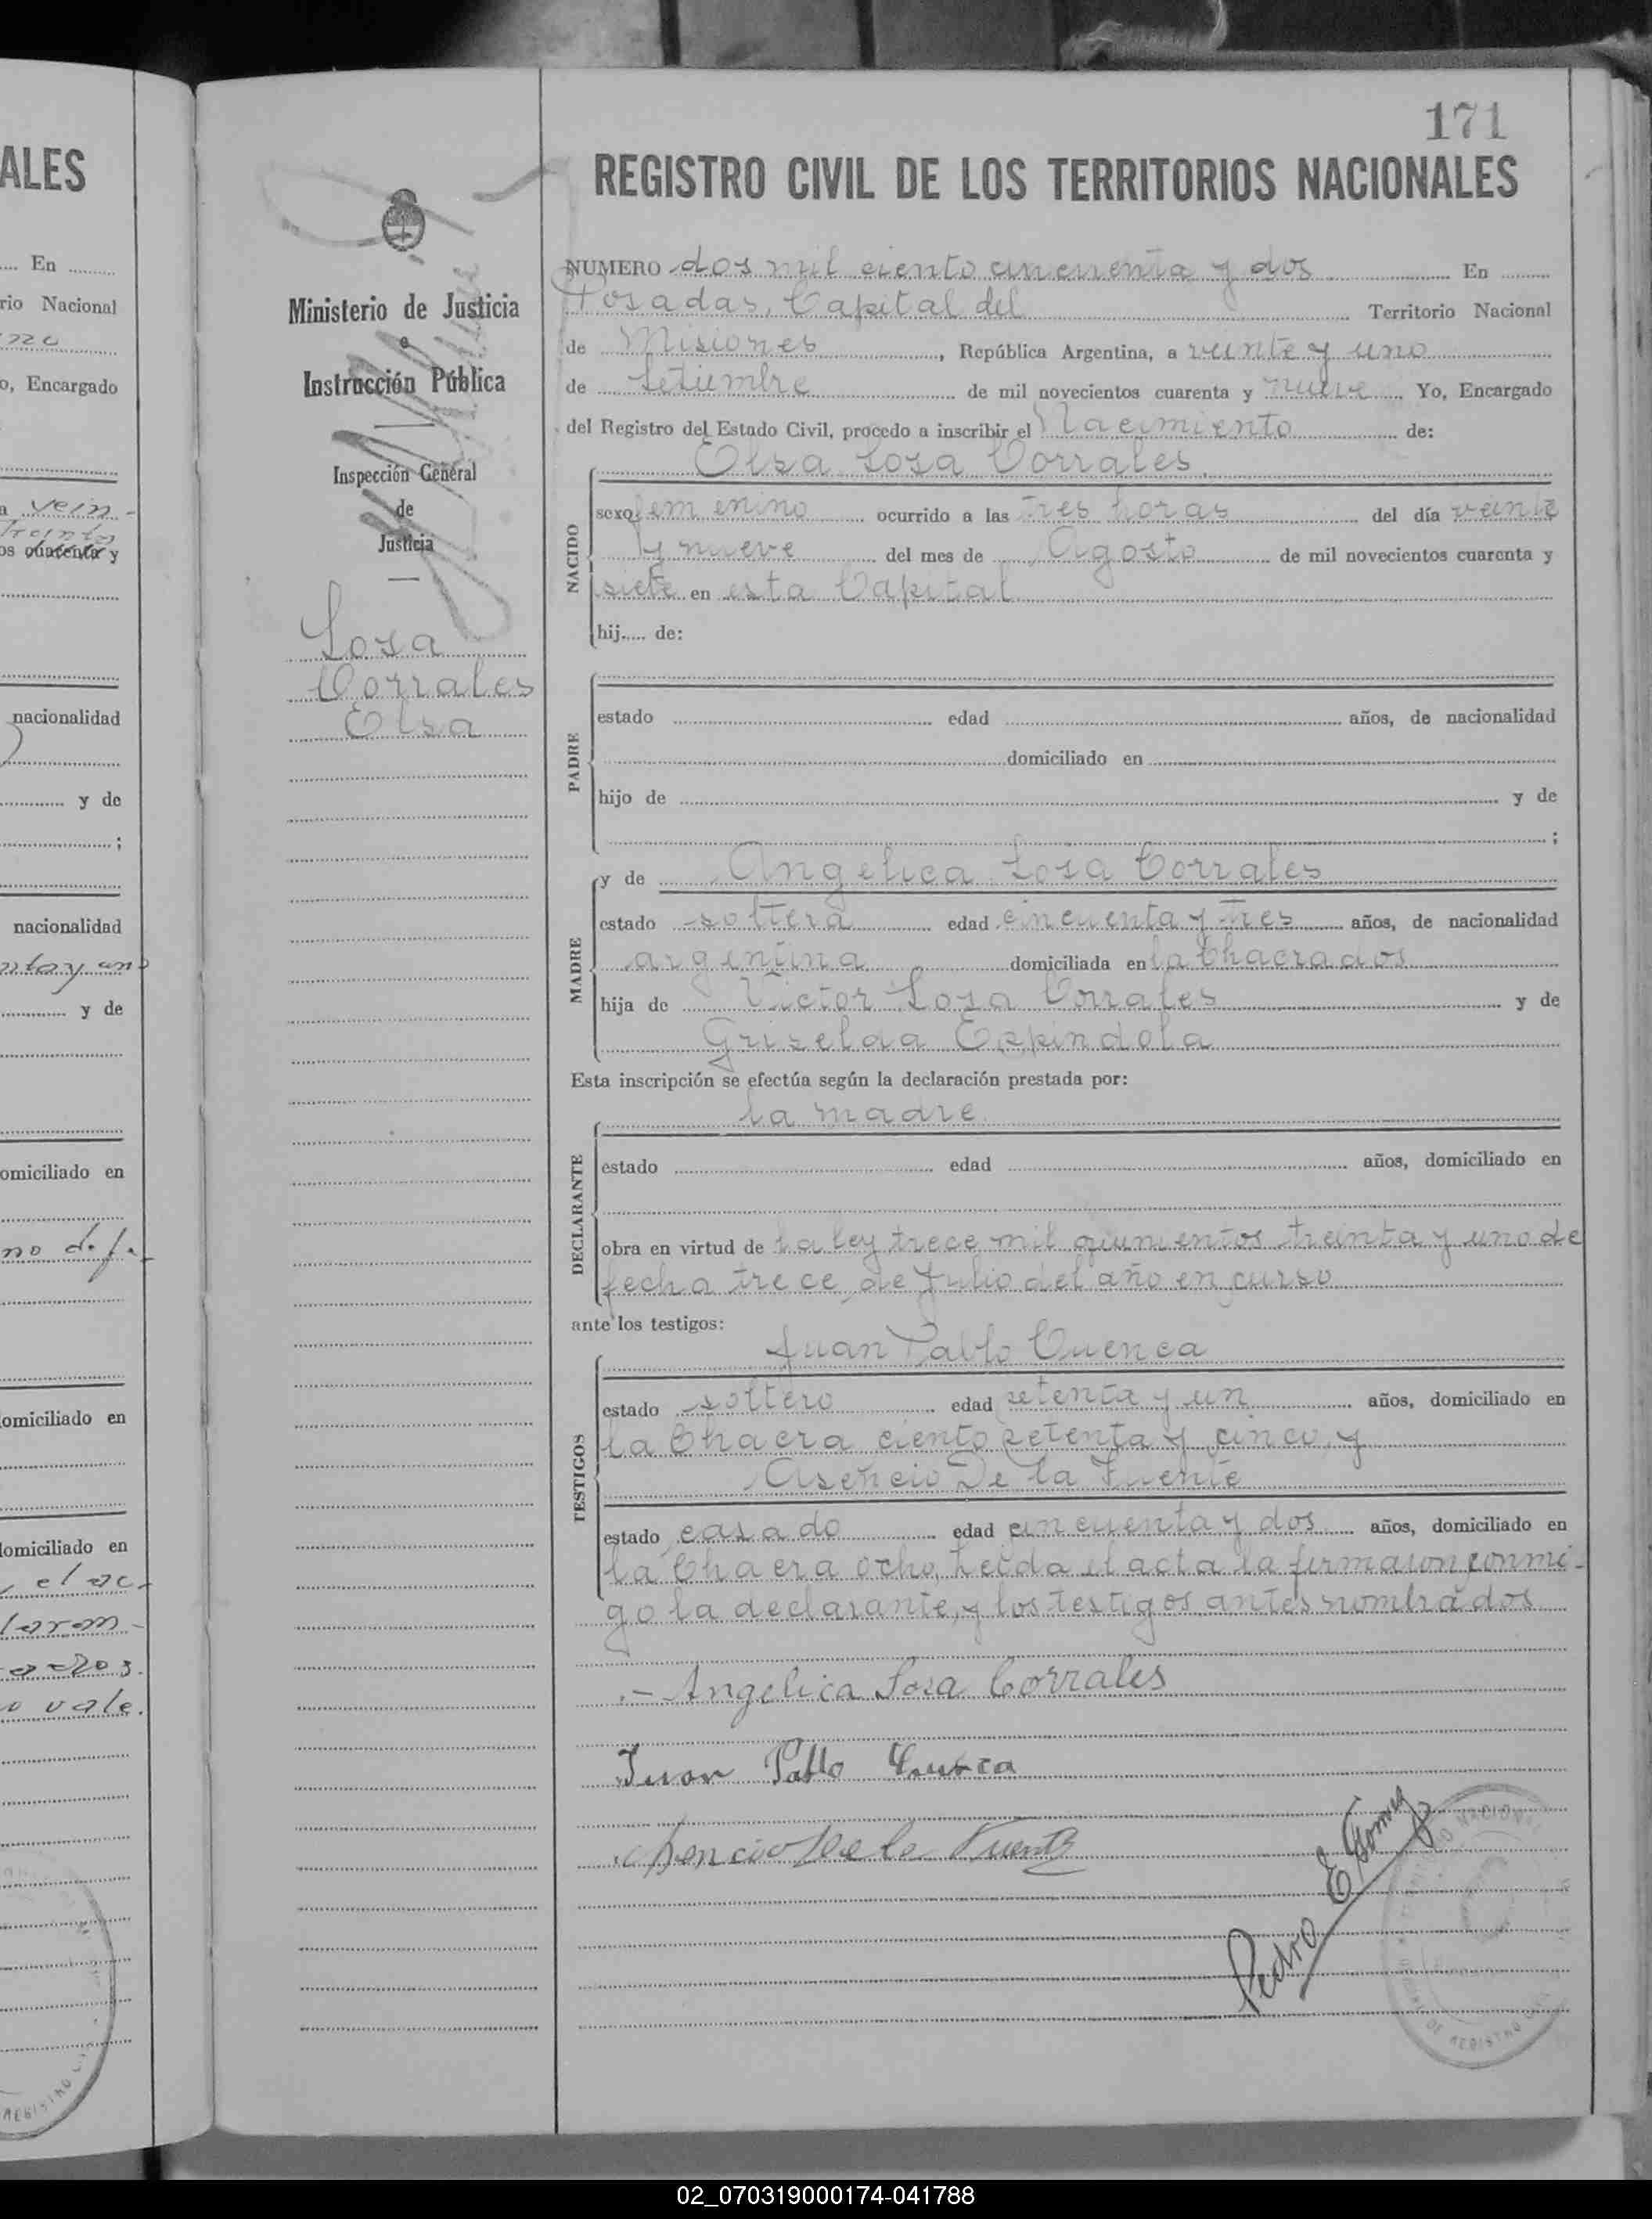 ALES
En
rio Nacional
o, Encargado
a vein-
Treinta
os cuarenta y
nacionalidad
y de
;
nacionalidad
y de
omiciliado en
omiciliado en
domiciliado en
vale.
Ministerio de Justicia
e
Instrucción Pública
Inspección General
de
Justicia
Sosa
Corrales
Elsa
171
REGISTRO CIVIL DE LOS TERRITORIOS NACIONALES
NUMERO dos mil ciento cincuenta y dos En
Posadas, Capital del Territorio Nacional
de Misiones, República Argentina, a veinte y uno
de Setiembre de mil novecientos cuarenta y nueve Yo, Encargado
del Registro del Estado Civil, procedo a inscribir el Nacimiento de:
Elsa Sosa Corrales
NACIDO
sexo femenino ocurrido a las tres horas del día veinte
y nueve del mes de Agosto de mil novecientos cuarenta y
siete en esta Capital
hij..... de:
PADRE
estado edad años, de nacionalidad
domiciliado en
hijo de y de
;
y de Angelica Sosa Corrales
MADRE
estado soltera edad cincuenta y tres años, de nacionalidad
argentina domiciliada en la Chacra dos
hija de Victor Sosa Corrales y de
Griselda Espindola
Esta inscripción se efectúa según la declaración prestada por:
la madre
DECLARANTE
estado edad años, domiciliado en
obra en virtud de la ley trece mil quinientos treinta y uno de
fecha trece de Julio del año en curso
ante los testigos:
Juan Pablo Cuenca
TESTIGOS
estado soltero edad setenta y un años, domiciliado en
la Chacra ciento setenta y cinco, y
Asencio De la Fuente
estado casado edad cincuenta y dos años, domiciliado en
la Chacra ocho, Leida el acta la firmaron conmi-
go la declarante, y los testigos antes nombrados
.- Angelica Sosa Corrales
Juan Pablo Cuenca
Asencio De la Fuente
Pedro E Gomez
02_070319000174-041788